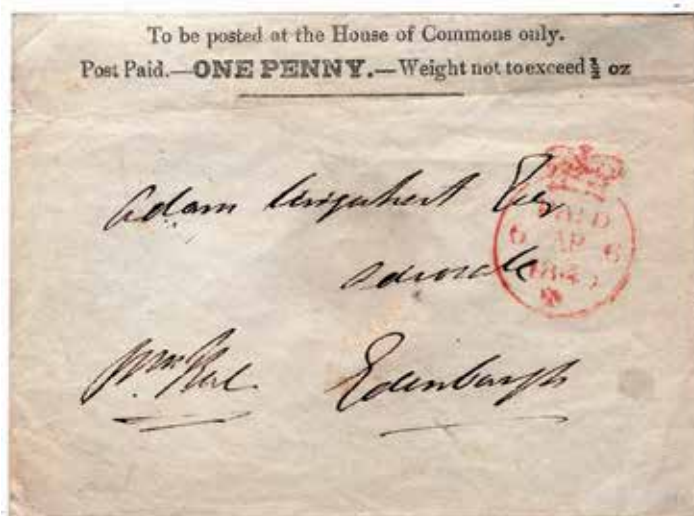 To be posted at the House of Commons only.
Post Paid.—ONE PENNY.—Weight not to exceed ½ oz
Adam Urquhart Esq
PAID
6 AP 6
1840
Advocate
Edinburgh